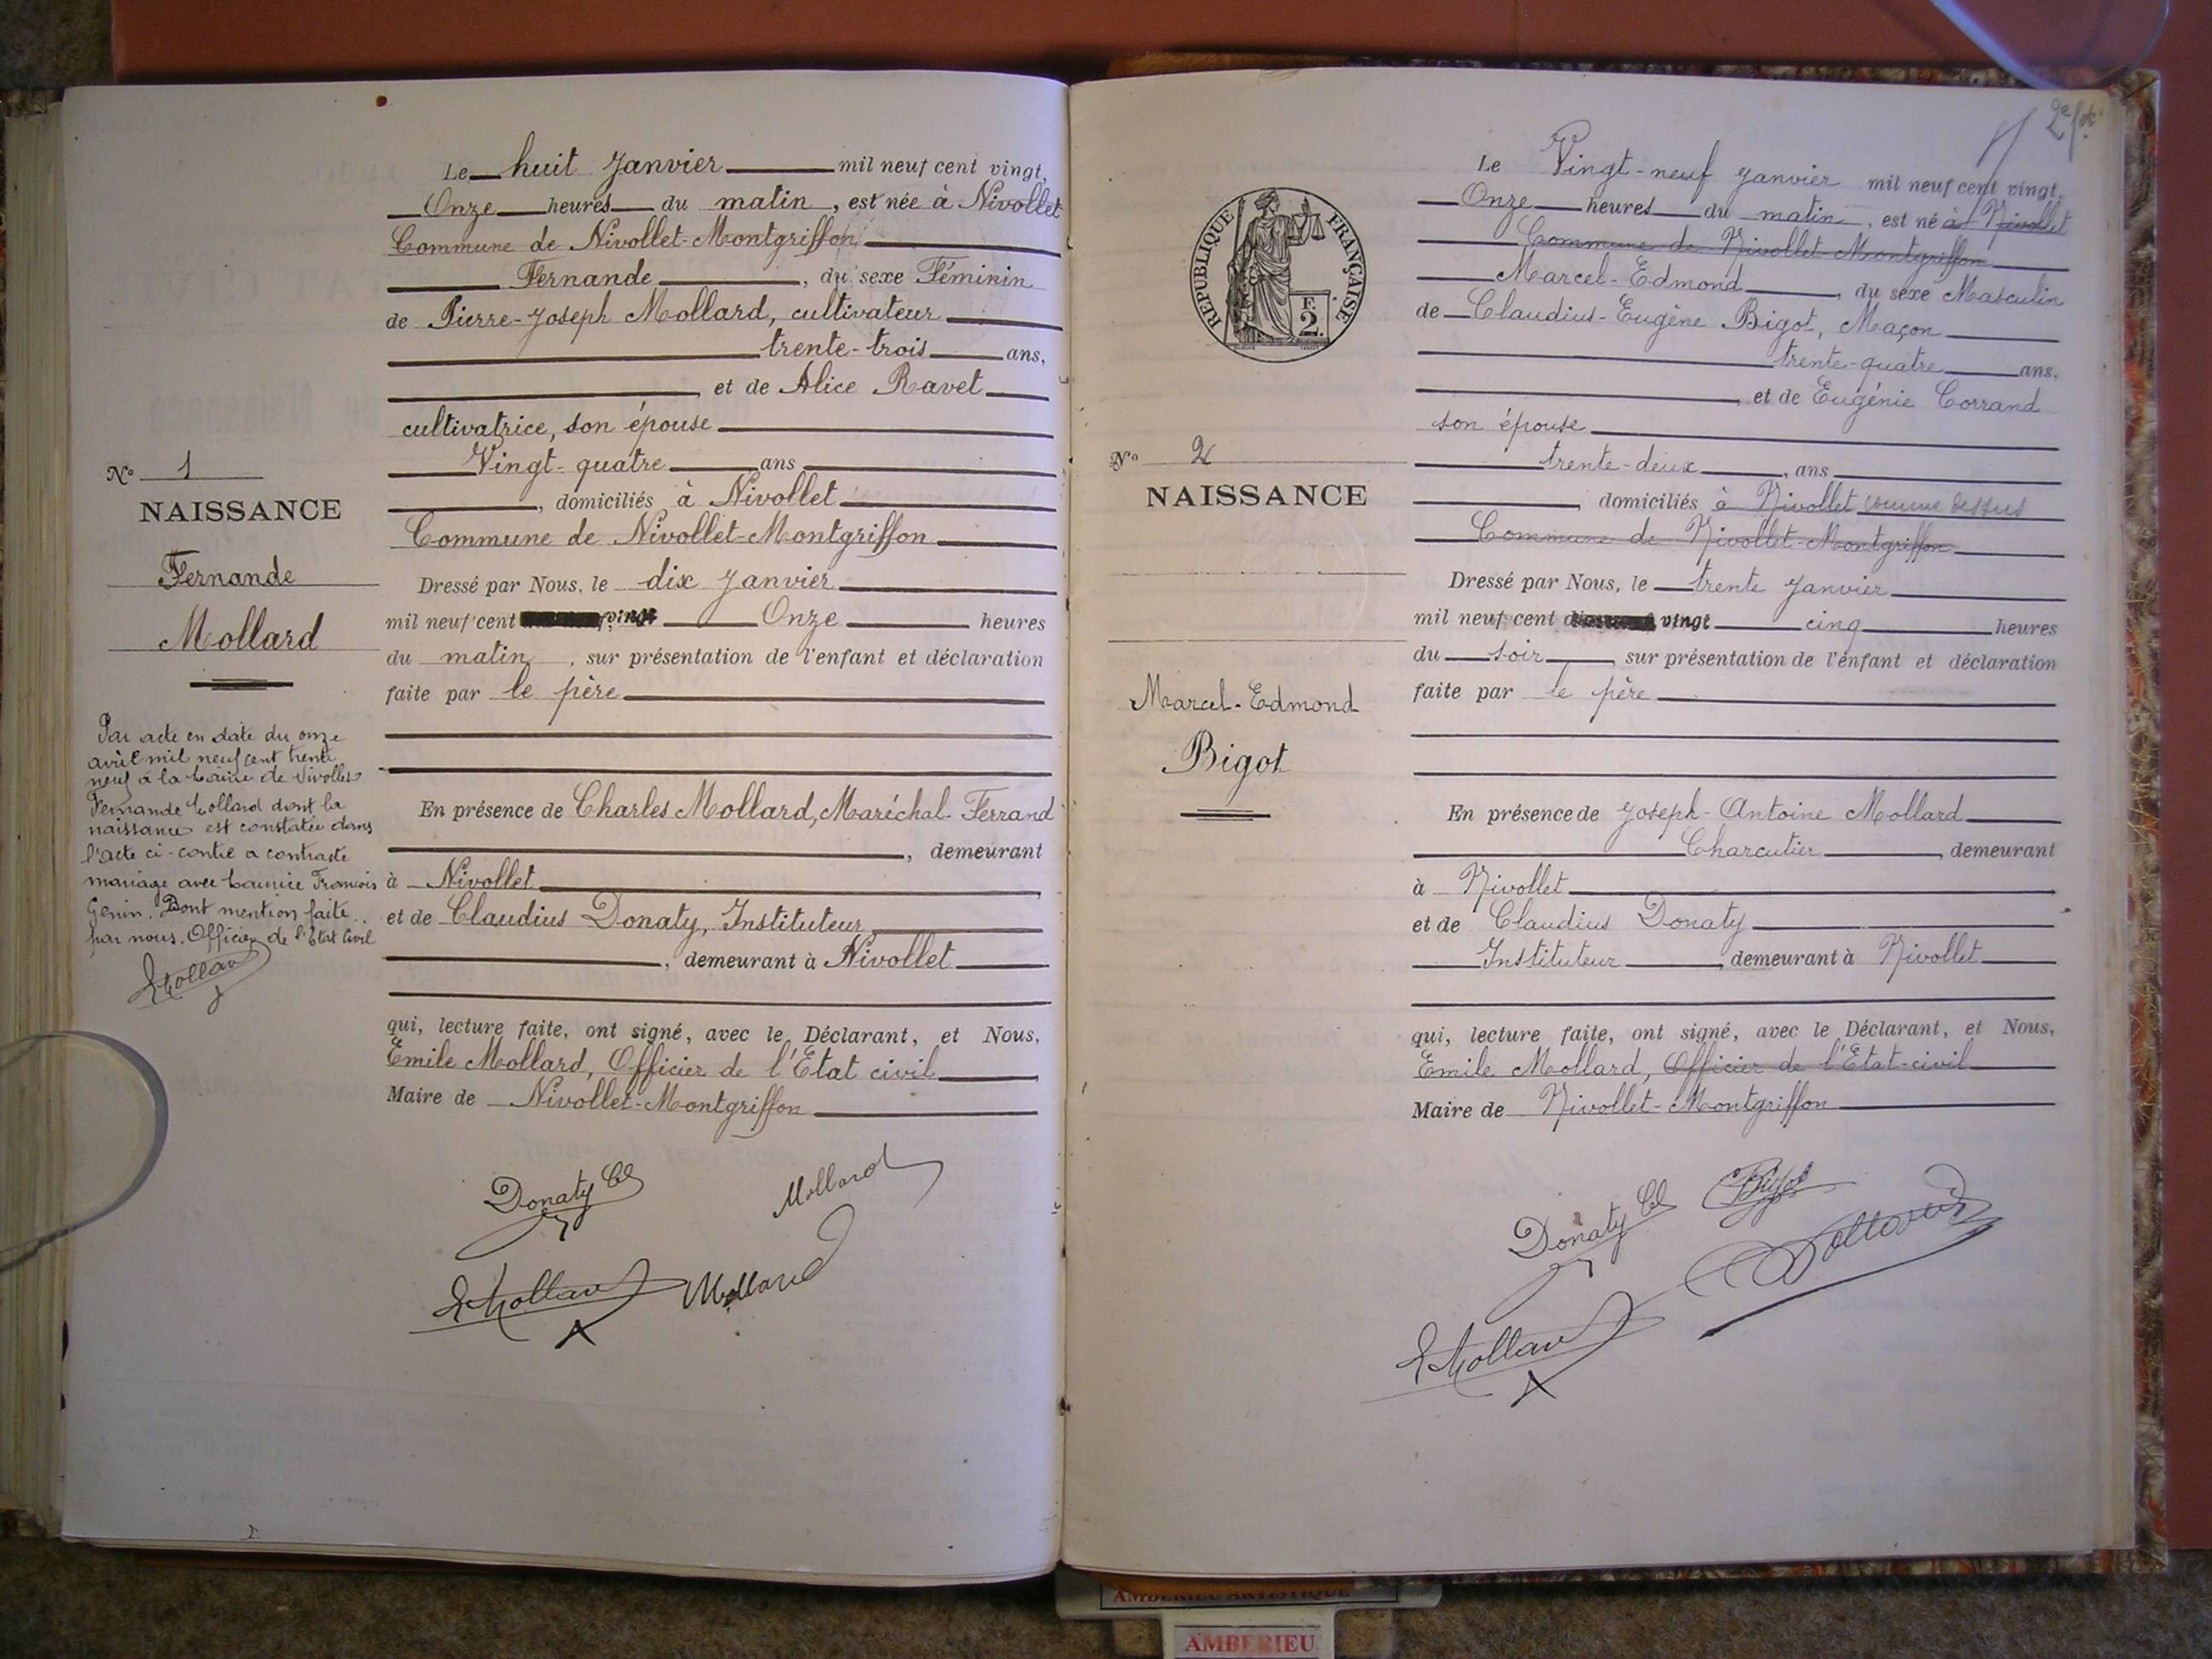 Le huit Janvier mil neuf cent vingt,
Onze heures du matin, est née à Nivollet
Commune de Nivollet-Montgriffon
Fernande, du sexe Féminin
de Pierre-Joseph Mollard, cultivateur
trente-trois ans,
et de Alice Ravet
cultivatrice, son épouse
Vingt-quatre ans
, domiciliés à Nivollet
Commune de Nivollet-Montgriffon
Dressé par Nous, le dix Janvier
mil neuf cent vingt Onze heures
du matin, sur présentation de l'enfant et déclaration
faite par le père
En présence de Charles Mollard, Maréchal-Ferrand
, demeurant
à Nivollet
et de Claudius Donaty, Instituteur
, demeurant à Nivollet
qui, lecture faite, ont signé, avec le Déclarant, et Nous,
Emile Mollard, Officier de l'Etat civil
Maire de Nivollet-Montgriffon
Donaty Cl
Mollard
EMollard
Mollard
No 1
NAISSANCE
Fernande
Mollard
Par acte en date du onze
avril mil neuf cent trente
neuf à la Mairie de Nivollet
Fernande Mollard dont la
naissance est constatée dans
l'acte ci-contre a contracté
mariage avec Maurice François
Genin. Dont mention faite
par nous. Officier de l'Etat Civil
EMollard
2e ft
Le Vingt-neuf Janvier mil neuf cent vingt,
Onze heures du matin, est né à Nivollet
Commune de Nivollet-Montgriffon
Marcel-Edmond, du sexe Masculin
de Claudius-Eugène Bigot, Maçon
trente-quatre ans,
, et de Eugénie Corrand
son épouse
trente-deux, ans
, domiciliés à Nivollet comme dessus
Commune de Nivollet-Montgriffon
Dressé par Nous, le trente Janvier
mil neuf cent vingt cinq heures
du soir, sur présentation de l'enfant et déclaration
faite par le père
En présence de Joseph-Antoine Mollard
Charcutier, demeurant
à Nivollet
et de Claudius Donaty
Instituteur, demeurant à Nivollet
qui, lecture faite, ont signé, avec le Déclarant, et Nous,
Emile Mollard, Officier de l'Etat-civil
Maire de Nivollet-Montgriffon
Donaty Cl
CBigot
Mollard
EMollard
RÉPUBLIQUE FRANÇAISE
F.
2.
No 2
NAISSANCE
Marcel-Edmond
Bigot
AMBERIEU ARTISTIQUE
AMBERIEU